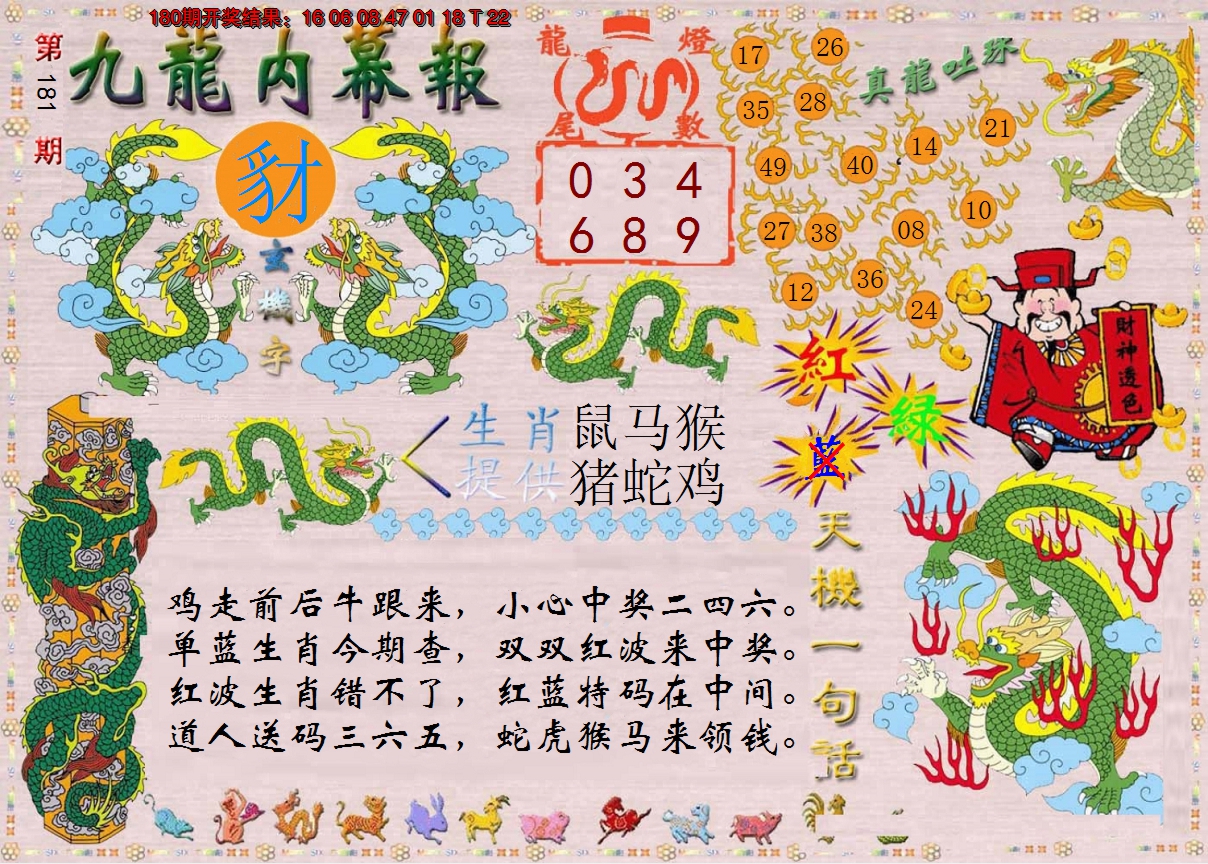 180期开奖结果：16 06 08 47 01 18 T 22
第181期
九龍内幕報
豺
玄機字
龍燈
尾數
0 3 4
6 8 9
真龍吐珠
17 26
35 28
49 40 14 21
27 38 08 10
12 36 24
財神透色
紅
綠
藍
生肖 鼠马猴
提供 猪蛇鸡
天機一句話
鸡走前后牛跟来，小心中奖二四六。
单蓝生肖今期查，双双红波来中奖。
红波生肖错不了，红蓝特码在中间。
道人送码三六五，蛇虎猴马来领钱。